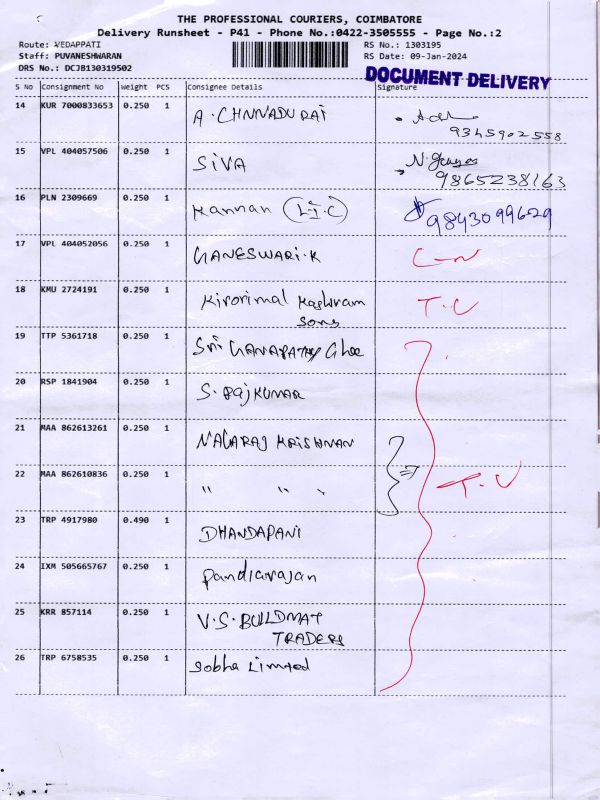 THE PROFESSIONAL COURIERS, COIMBATORE
Delivery Runsheet - P41 - Phone No.:0422-3505555 - Page No.:2
Route: VEDAPPATI
Staff: PUVANESHWARAN
DRS No.: DCJB130319502
RS No.: 1303195
RS Date: 09-Jan-2024
DOCUMENT DELIVERY
S No Consignment No Weight PCS Consignee Details Signature
14 KUR 7000833653 0.250 1 A. CHNNADURAI
9345902558
15 VPL 404057506 0.250 1 SIVA
9865238163
16 PLN 2309669 0.250 1 Kannan (L.I.C) 9843099629
17 VPL 404052056 0.250 1 GANESWARI.K
18 KMU 2724191 0.250 1 Kirorimal Kashiram T.C
sons
19 TTP 5361718 0.250 1 Sri GANAPATHY Ghee
20 RSP 1841904 0.250 1 S. RAJKUMAR
21 MAA 862613261 0.250 1 NAGARAJ KRISHNAN
22 MAA 862610836 0.250 1 " " "
23 TRP 4917980 0.490 1 DHANDAPANI
24 IXM 505665767 0.250 1 Pandiarajan
25 KRR 857114 0.250 1 V.S. BUILDMAT
TRADERS
26 TRP 6758535 0.250 1 Sobha Limited